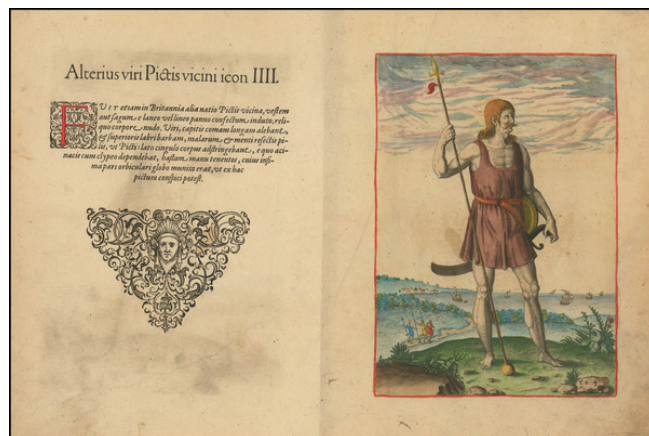 Alterius viri Pictis vicini icon IIII.
FVIT etiam in Britannia alia natio Pictis vicina, vestem
aut sagum e laneo vel lineo panno confectum induta, reli-
quo corpore nudo. Viri, capitis comam longam alebant,
& superioris labri barbam, malarum & menti resectis pi-
lis, vt Picti: lato cingulo corpus adstringebant, e quo aci-
nacis cum clypeo dependebat, hastam manu tenentes, cuius infi-
ma pars orbiculari globo munita erat, vt ex hac
pictura conspici potest.